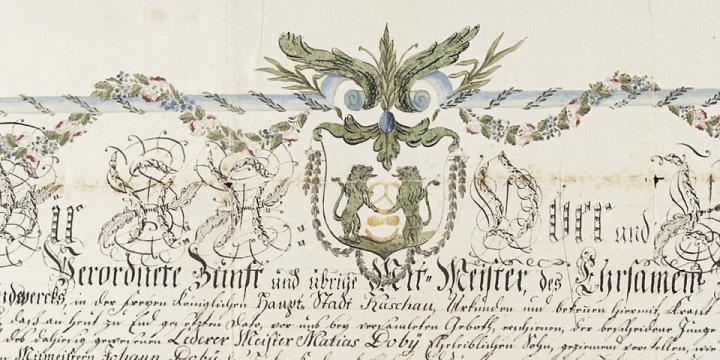 Wür N. N. Ober und
Verordnete Zunft und übrige Mit-Meister, des Ehrsamen
in der freyen Königlichen Haupt Stadt Kaschau, Urkunden und bekennen hiermit, kraft
daß an heut zu End gesetzten dato, vor uns bey versamleten Gebott, erschienen, der bescheidene Junge
des dahierig gewesenen Lederer Meister Matias Doby Eheleiblichen Sohn, geziemend vorstellen,
Mitmeistern Johann Doby